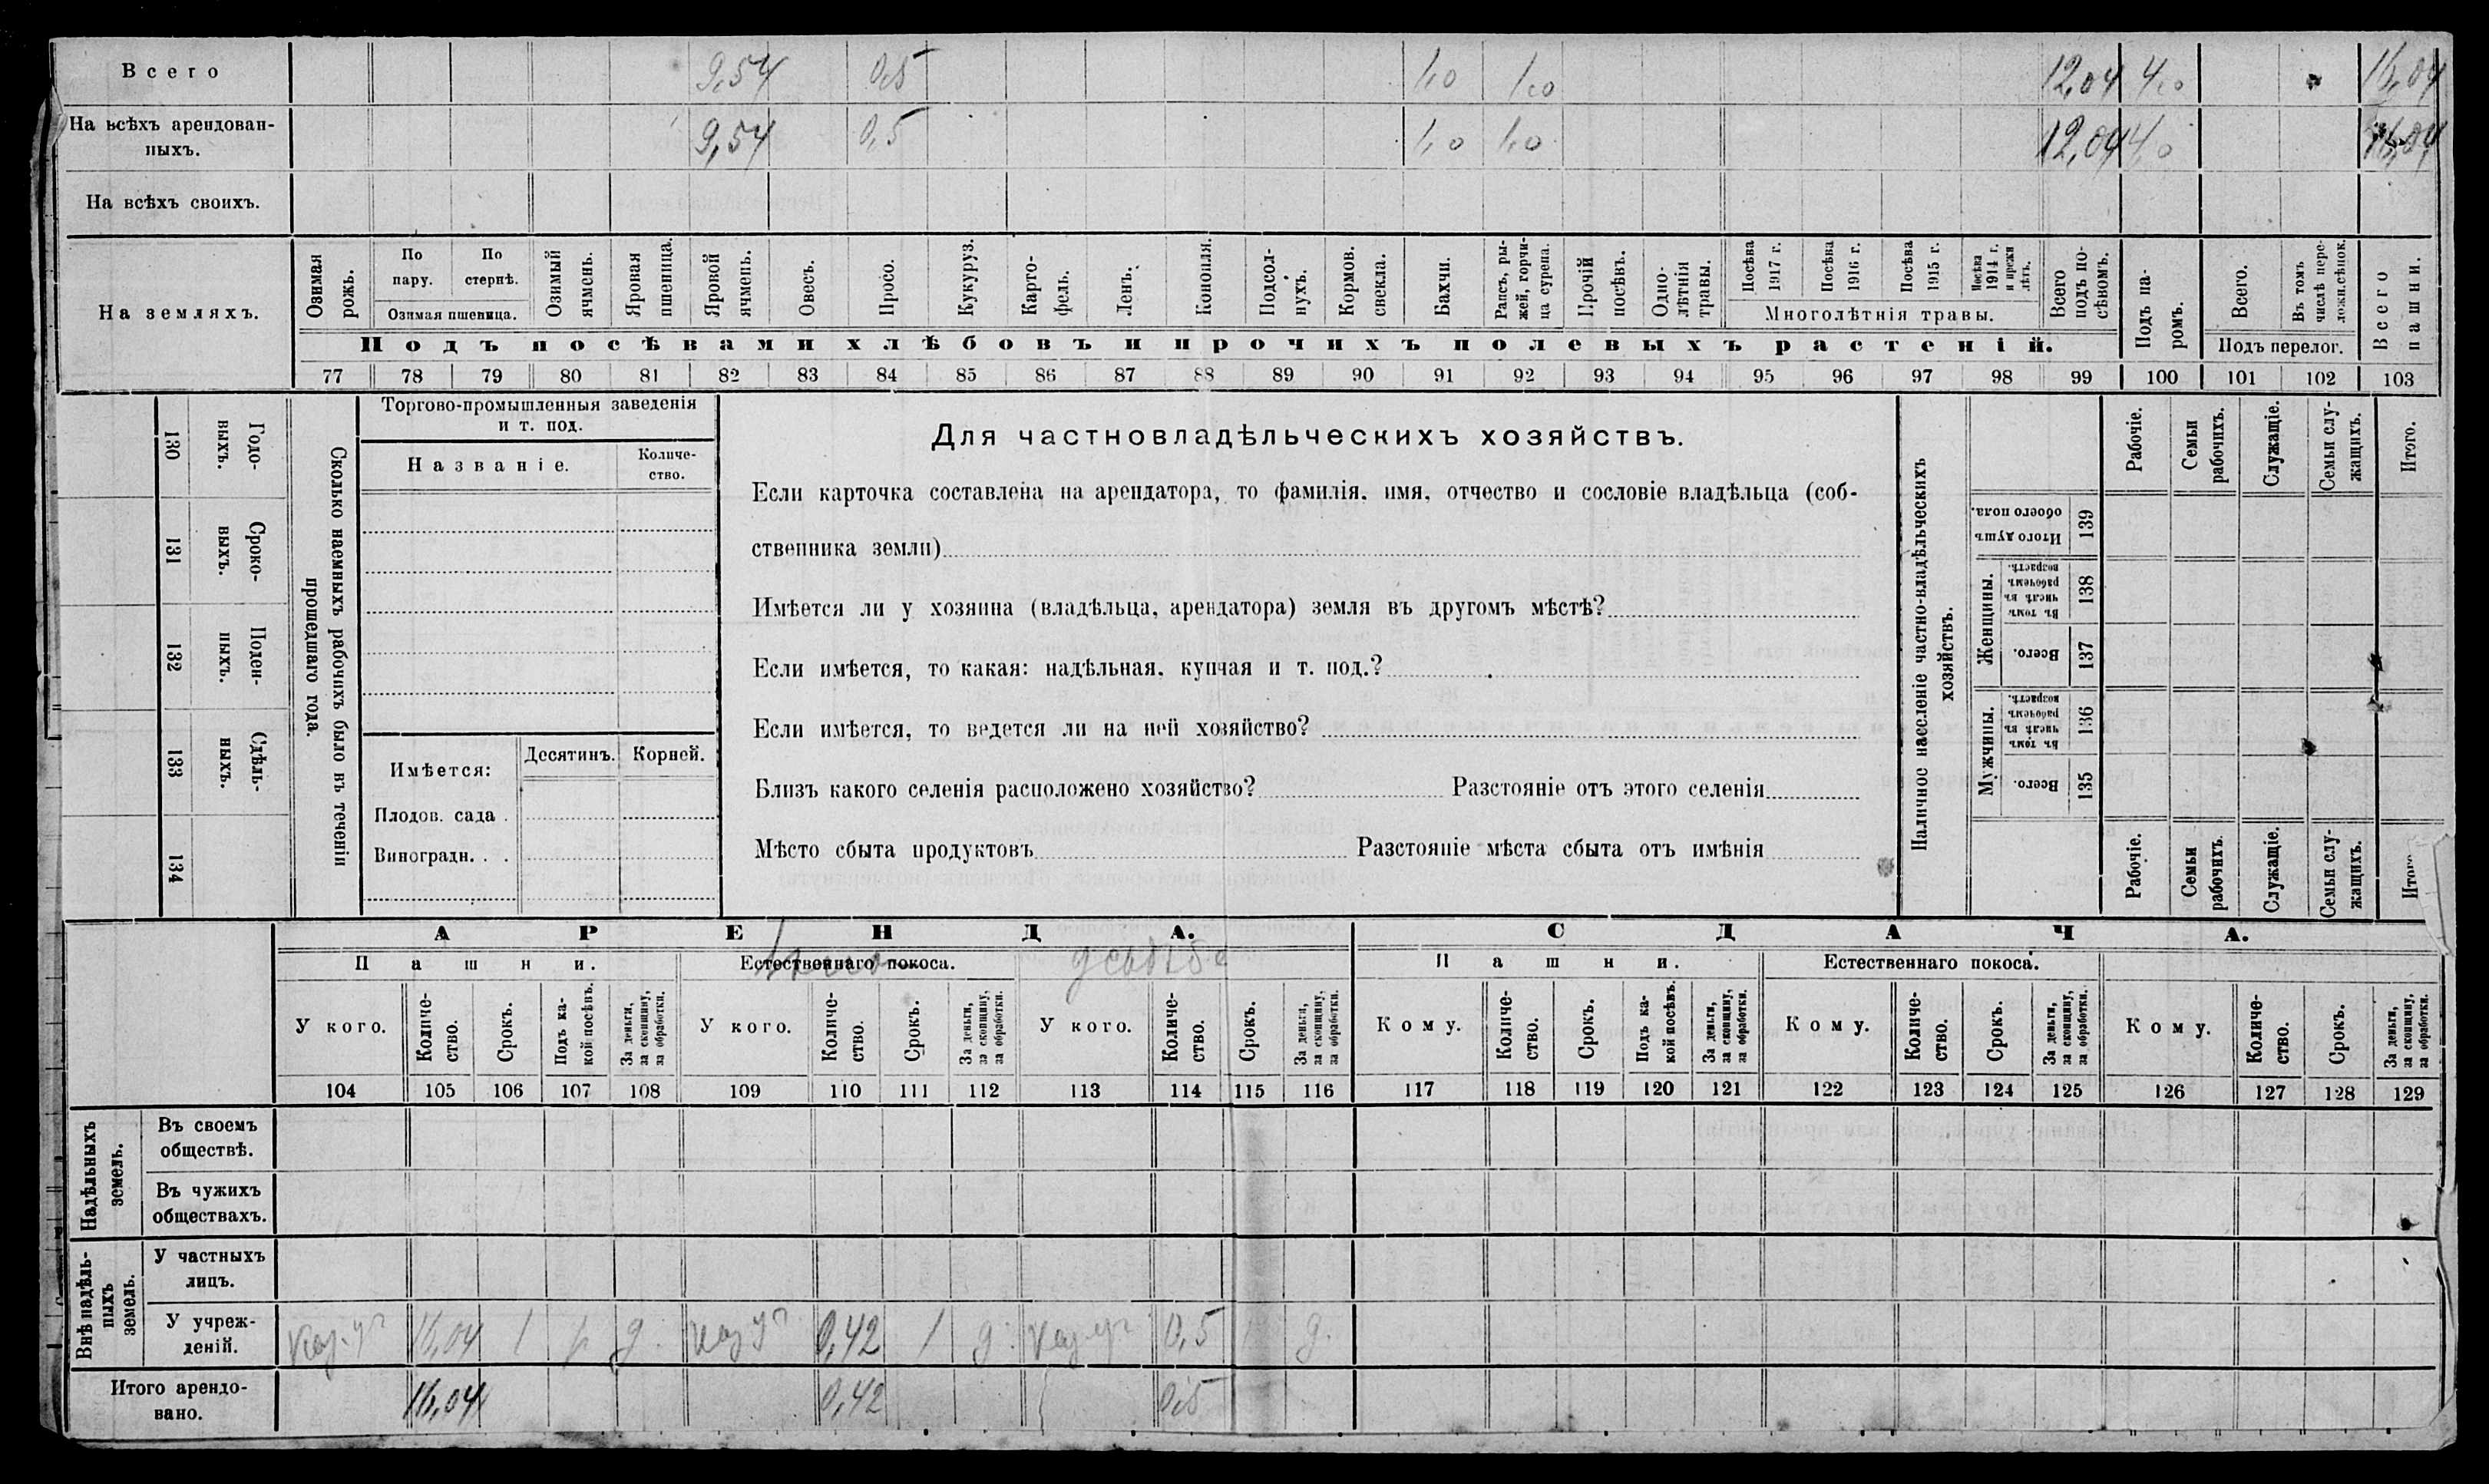 Всего 9,54 0,5 1,0 1,0 12,04 4,0 16,04
На всѣхъ арендован-
ныхъ. 9,54 0,5 1,0 1,0 12,04 4,0 16,04
На всѣхъ своихъ.
На земляхъ.
Озимая рожь.
По пару.
По стернѣ.
Озимая пшеница.
Озимый ячмень.
Яровая пшеница.
Яровой ячмень.
Овесъ.
Просо.
Кукуруз.
Карто-
фель.
Ленъ.
Конопля.
Подсол-
нухъ.
Кормов.
свекла.
Бахчи.
Рапсъ, ры-
жей, горчи-
ца сурепа.
Прочій
посѣвъ.
Одно-
лѣтнія
травы.
Посѣва 1917 г.
Посѣва 1916 г.
Посѣва 1915 г.
Посѣва 1914 г. и прежн лѣтъ.
Многолѣтнія травы.
Всего
подъ по-
сѣвомъ.
Подъ па-
ромъ.
Всего.
Въ томъ
числѣ пере-
ложн.сѣнок.
Подъ перелог.
Всего
пашни.
Подъ посѣвами хлѣбовъ и прочихъ полевыхъ растеній.
77 78 79 80 81 82 83 84 85 86 87 88 89 90 91 92 93 94 95 96 97 98 99 100 101 102 103
130 Годо-
выхъ.
131 Сроко-
выхъ.
132 Поден-
ныхъ.
133 Сдѣль-
ныхъ.
134
Сколько наемныхъ рабочихъ было въ теченіи
прошедшаго года.
Торгово-промышленныя заведенія
и т. под.
Названіе.
Количе-
ство.
Имѣется:
Десятинъ.
Корней.
Плодов. сада .
Виноградн. . .
Для частновладѣльческихъ хозяйствъ.
Если карточка составлена на арендатора, то фамилія, имя, отчество и сословіе владѣльца (соб-
ственника земли)
Имѣется ли у хозяина (владѣльца, арендатора) земля въ другомъ мѣстѣ?
Если имѣется, то какая: надѣльная, купчая и т. под.?
Если имѣется, то ведется ли на ней хозяйство?
Близъ какого селенія расположено хозяйство? Разстояніе отъ этого селенія
Мѣсто сбыта продуктовъ Разстояніе мѣста сбыта отъ имѣнія
Наличное населеніе частно-владѣльческихъ
хозяйствъ.
Рабочіе.
Семьи
рабочихъ.
Служащіе.
Семьи слу-
жащихъ.
Итого.
Итого душъ
обоего пола. 139
Женщины.
Въ томъ
числѣ въ
рабочемъ
возрастѣ. 138
Всего. 137
Мужчины.
Въ томъ
числѣ въ
рабочемъ
возрастѣ. 136
Всего. 135
Рабочіе.
Семьи
рабочихъ.
Служащіе.
Семьи слу-
жащихъ.
АРЕНДА. СДАЧА.
Пашни. Естественнаго покоса. Пашни. Естественнаго покоса.
У кого.
Количе-
ство.
Срокъ.
Подъ ка-
кой посѣвъ.
За деньги,
за скопщину,
за обработки.
У кого.
Количе-
ство.
Срокъ.
За деньги,
за скопщину,
за обработки.
У кого.
Количе-
ство.
Срокъ.
За деньги,
за скопщину,
за обработки.
Кому.
Количе-
ство.
Срокъ.
Подъ ка-
кой посѣвъ.
За деньги,
за скопщину,
за обработки.
Кому.
Количе-
ство.
Срокъ.
За деньги,
за скопщину,
за обработки.
Кому.
Количе-
ство.
Срокъ.
За деньги,
за скопщину,
за обработки.
104 105 106 107 108 109 110 111 112 113 114 115 116 117 118 119 120 121 122 123 124 125 126 127 128 129
Надѣльныхъ
земель.
Въ своемъ
обществѣ.
Въ чужихъ
обществахъ.
Внѣ надѣль-
ныхъ
земель.
У частныхъ
лицъ.
У учреж-
деній.
16,04 1 д. 0,42 1 д. 0,5 д.
Итого арендо-
вано. 16,04 0,42 0,5